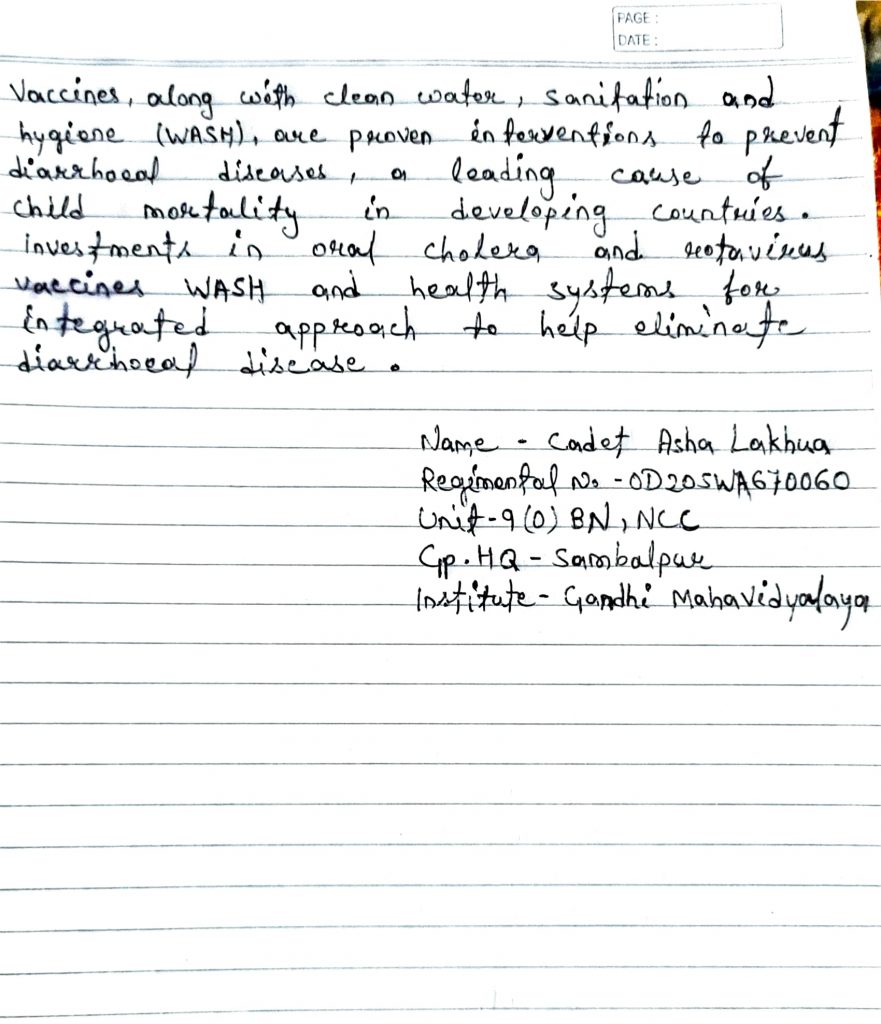 PAGE :
DATE :
Vaccines, along with clean water, sanitation and
hygiene (WASH), are proven interventions to prevent
diarrhoeal diseases, a leading cause of
child mortality in developing countries.
investments in oral cholera and rotavirus
vaccines WASH and health systems for
integrated approach to help eliminate
diarrhoeal disease.
Name - Cadet Asha Lakhua
Regimental No - OD20SWA670060
Unit - 9 (O) BN, NCC
Gp. HQ - Sambalpur
Institute - Gandhi Mahavidyalaya